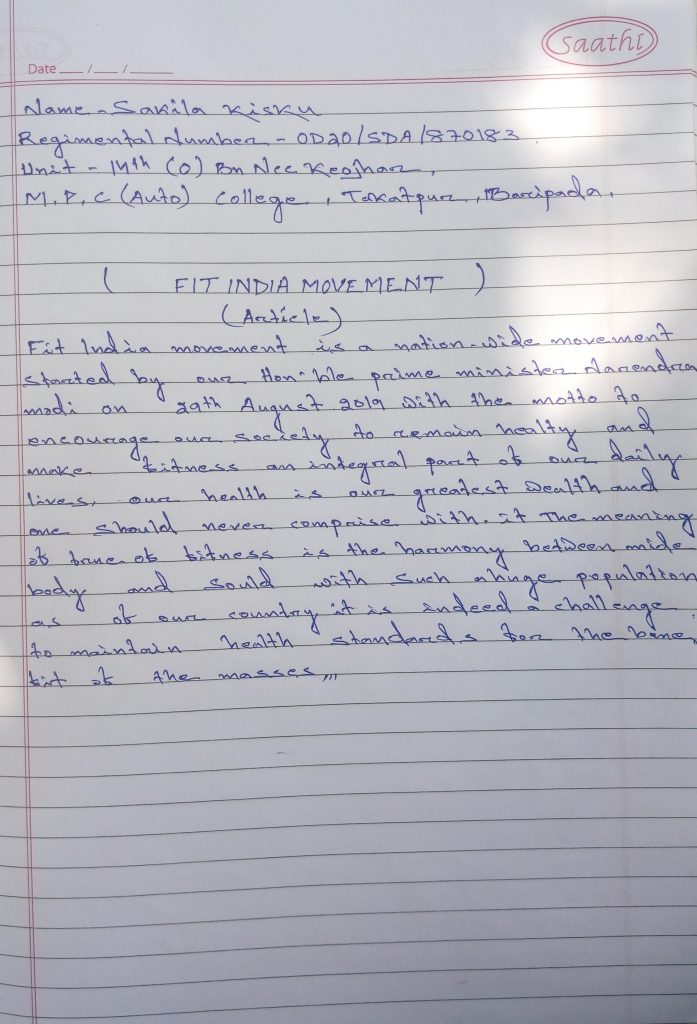 saathi
Date __/__/____
Name - Sakila Kisku
Regimental Number - OD20/SDA/870183
Unit - 14th (O) Bn Ncc Keojhar,
M.P.C (Auto) College, Takatpur, Baripada,
( FIT INDIA MOVEMENT )
(Article)
Fit India movement is a nation-wide movement
started by our Hon'ble prime minister Narendra
modi on 29th August 2019 with the motto to
encourage our society to remain healty and
make fitness an integral part of our daily
lives, our health is our greatest wealth and
one should never compraise with. it The meaning
of of fitness is the harmony between mide
body and sould with such a huge population
as of our country it is indeed a challenge
to maintain health standards for the bine,
fit of the masses,,,